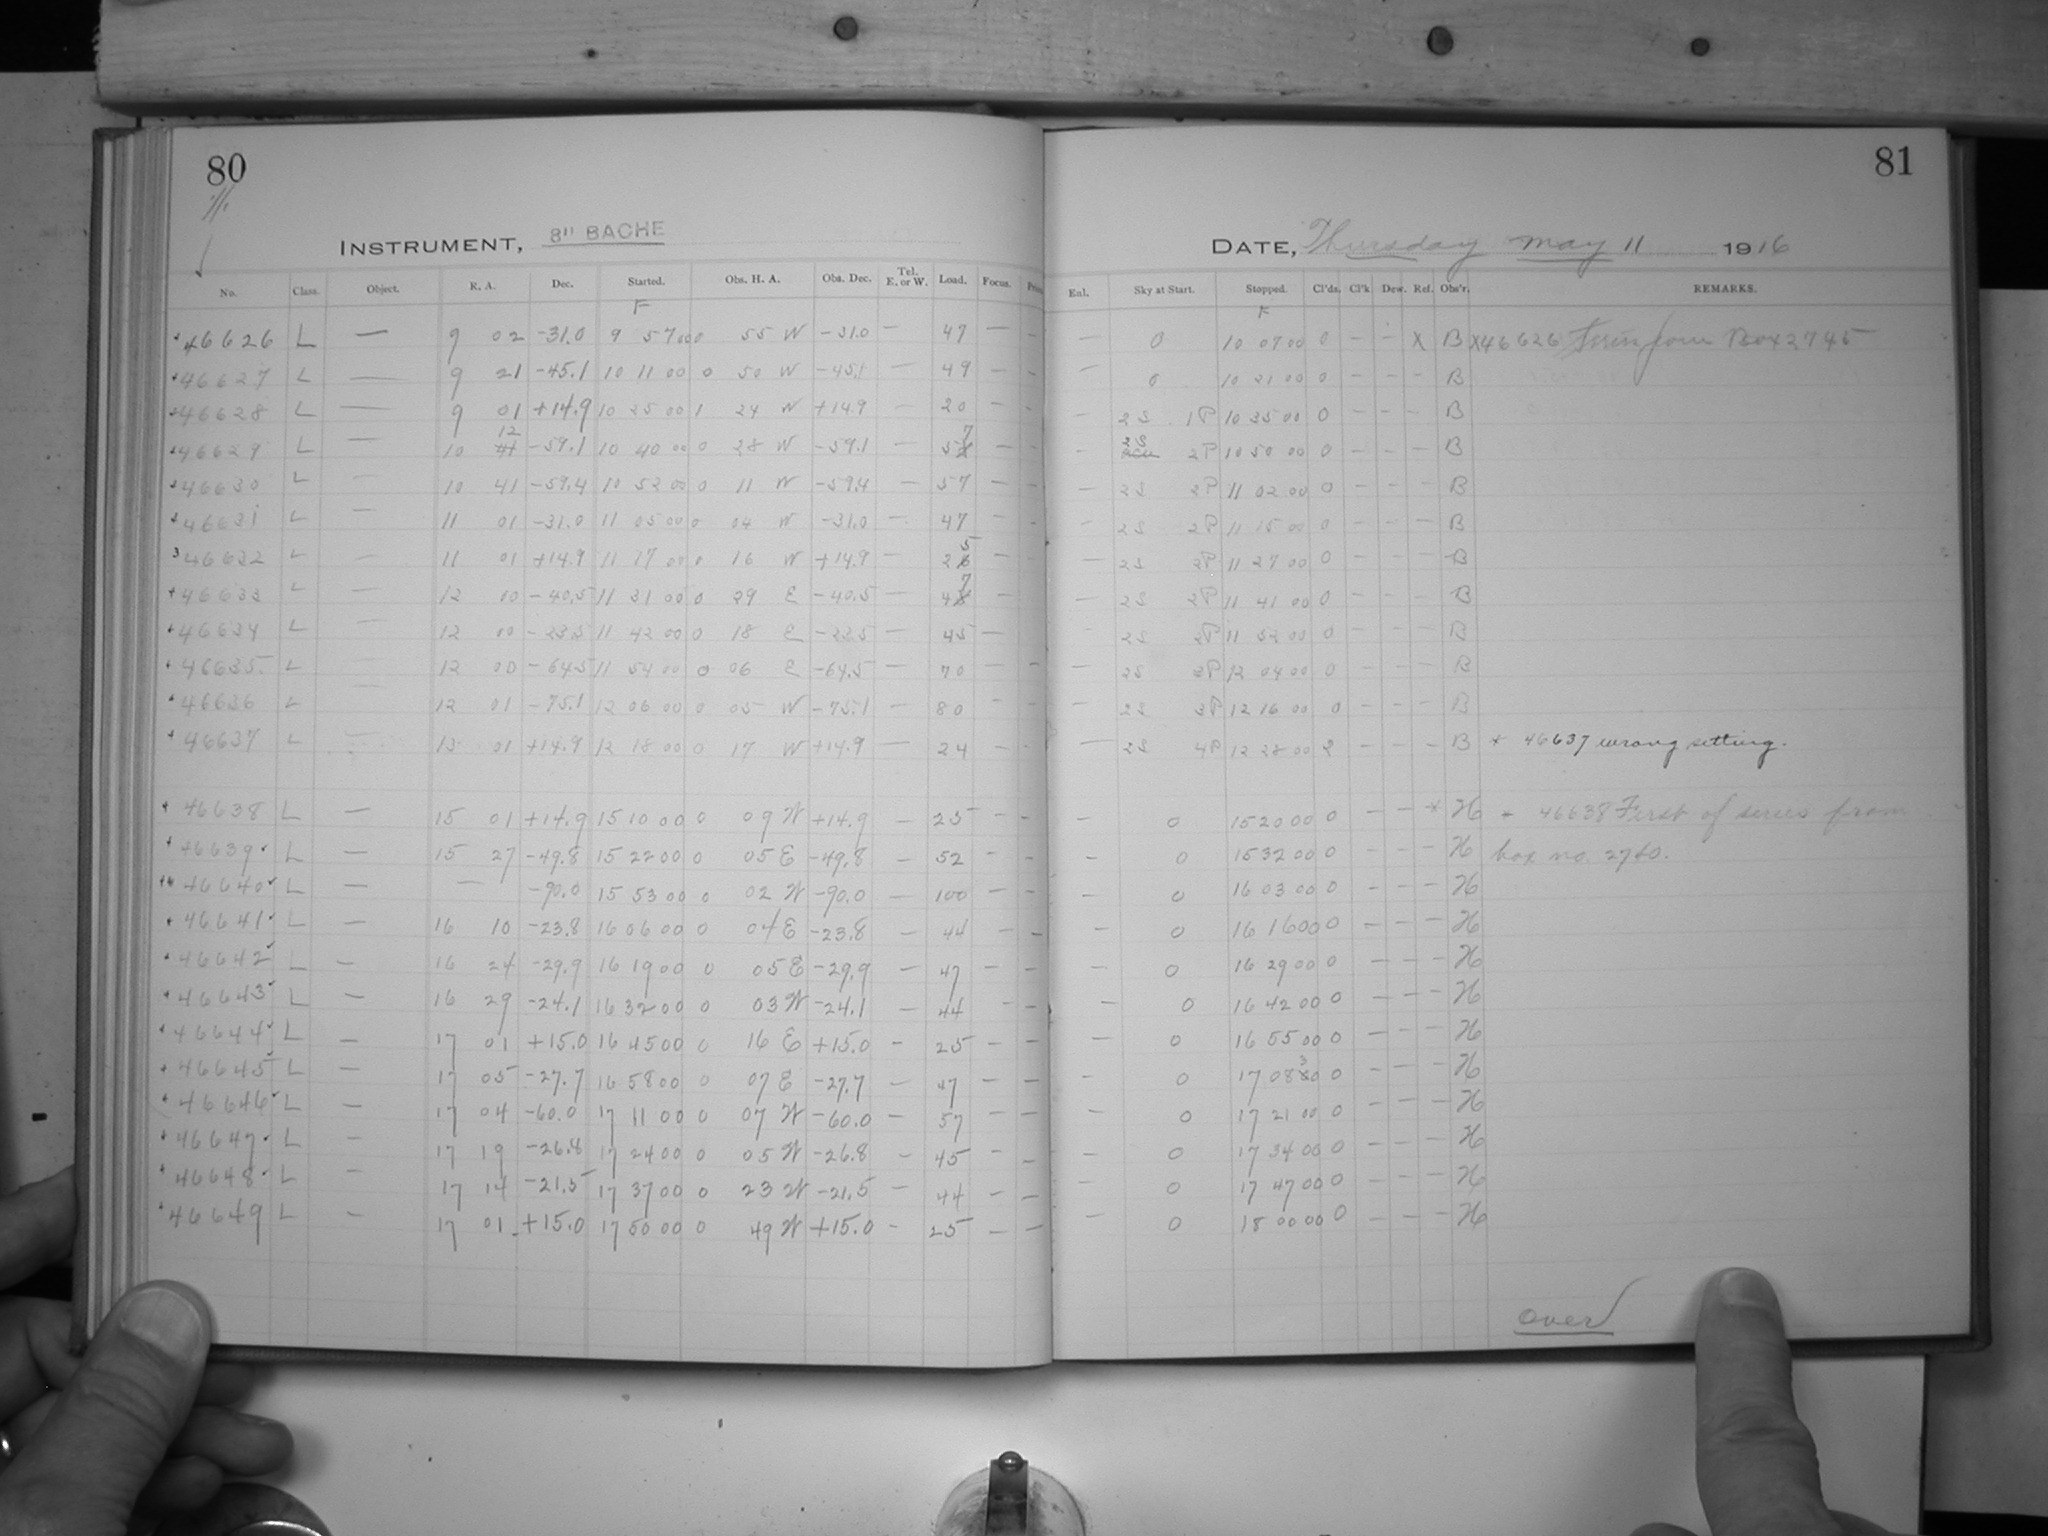 80
INSTRUMENT, 8" BACHE
No. Class. Object. R. A. Dec. Started. Obs. H. A. Obs. Dec. Tel. E. or W. Load. Focus.
F
46626 L — 9 02 -31.0 9 57 00 0 55 W -31.0 — 47 — —
46627 L — 9 21 -45.1 10 11 00 0 50 W -45.1 — 49 — —
46628 L — 9 01 +14.9 10 25 00 1 24 W +14.9 — 20 — —
46629 L — 10 12 -59.1 10 40 00 0 28 W -59.1 — 57 — —
46630 L — 10 41 -59.4 10 52 00 0 11 W -59.4 — 57 — —
46631 L — 11 01 -31.0 11 05 00 0 04 W -31.0 — 47 — —
46632 L — 11 01 +14.9 11 17 00 0 16 W +14.9 — 25 — —
46633 L — 12 00 -40.5 11 31 00 0 29 E -40.5 — 47 — —
46634 L — 12 00 -23.5 11 42 00 0 18 E -23.5 — 45 —
46635 L — 12 00 -64.5 11 54 00 0 06 E -64.5 — 70 — —
46636 L — 12 01 -75.1 12 06 00 0 05 W -75.1 — 80 — —
46637 L — 01 +14.9 12 18 00 0 17 W +14.9 — 24 — —
46638 L — 15 01 +14.9 15 10 00 0 09 W +14.9 — 25 — —
46639 L — 15 27 -49.8 15 22 00 0 05 E -49.8 — 52 — —
46640 L — — -90.0 15 53 00 0 02 W -90.0 — 100 — —
46641 L — 16 10 -23.8 16 06 00 0 04 E -23.8 — 44 — —
46642 L — 16 24 -29.9 16 19 00 0 05 E -29.9 — 47 — —
46643 L — 16 29 -24.1 16 32 00 0 03 W -24.1 — 44 — —
46644 L — 17 01 +15.0 16 45 00 0 16 E +15.0 — 25 — —
46645 L — 17 05 -27.7 16 58 00 0 07 E -27.7 — 47 — —
46646 L — 17 04 -60.0 17 11 00 0 07 W -60.0 — 57 — —
46647 L — 17 19 -26.8 17 24 00 0 05 W -26.8 — 45 — —
46648 L — 17 14 -21.5 17 37 00 0 23 W -21.5 — 44 — —
46649 L — 17 01 +15.0 17 50 00 0 49 W +15.0 — 25 — —
81
DATE, Thursday May 11 1916
Enl. Sky at Start. Stopped. Cl'ds. Cl'k Dew. Ref. Obs'r. REMARKS.
F
— 0 10 07 00 0 — — X B X46626 from Box 2745
— 0 10 21 00 0 — — — B
— 2S 1P 10 35 00 0 — — — B
— 2S 2P 10 50 00 0 — — — B
— 2S 2P 11 02 00 0 — — — B
— 2S 2P 11 15 00 0 — — — B
— 2S 2P 11 27 00 0 — — — B
— 2S 2P 11 41 00 0 — — — B
— 2S 2P 11 52 00 0 — — — B
— 2S 2P 12 04 00 0 — — — B
— 2S 3P 12 16 00 0 — — — B
— 2S 4P 12 28 00 2 — — — B * 46637 wrong setting.
— 0 15 20 00 0 — — * H * 46638 First of series from
— 0 15 32 00 0 — — — H box no. 2740.
— 0 16 03 00 0 — — — H
— 0 16 16 00 0 — — — H
— 0 16 29 00 0 — — — H
— 0 16 42 00 0 — — — H
— 0 16 55 00 0 — — — H
— 0 17 08 30 0 — — — H
— 0 17 21 00 0 — — — H
— 0 17 34 00 0 — — — H
— 0 17 47 00 0 — — — H
— 0 18 00 00 0 — — — H
over